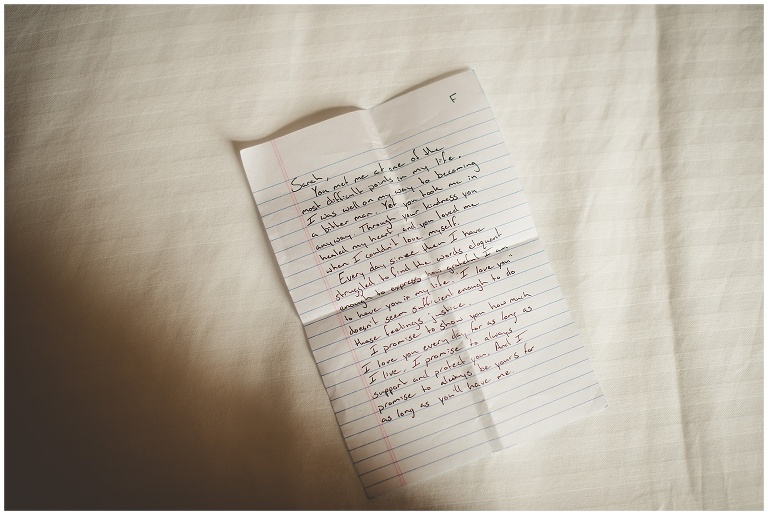 F
Sarah,
You met me at one of the
most difficult points in my life.
I was well on my way to becoming
a bitter man. Yet you took me in
anyway. Through your kindness you
healed my heart, and you loved me
when I couldn't love myself.
Every day since then I have
struggled to find the words eloquent
enough to express how grateful I am
to have you in my life. "I love you"
doesn't seem sufficient enough to do
these feelings justice.
I promise to show you how much
I love you every day for as long as
I live. I promise to always
support and protect you. And I
promise to always be yours for
as long as you'll have me.